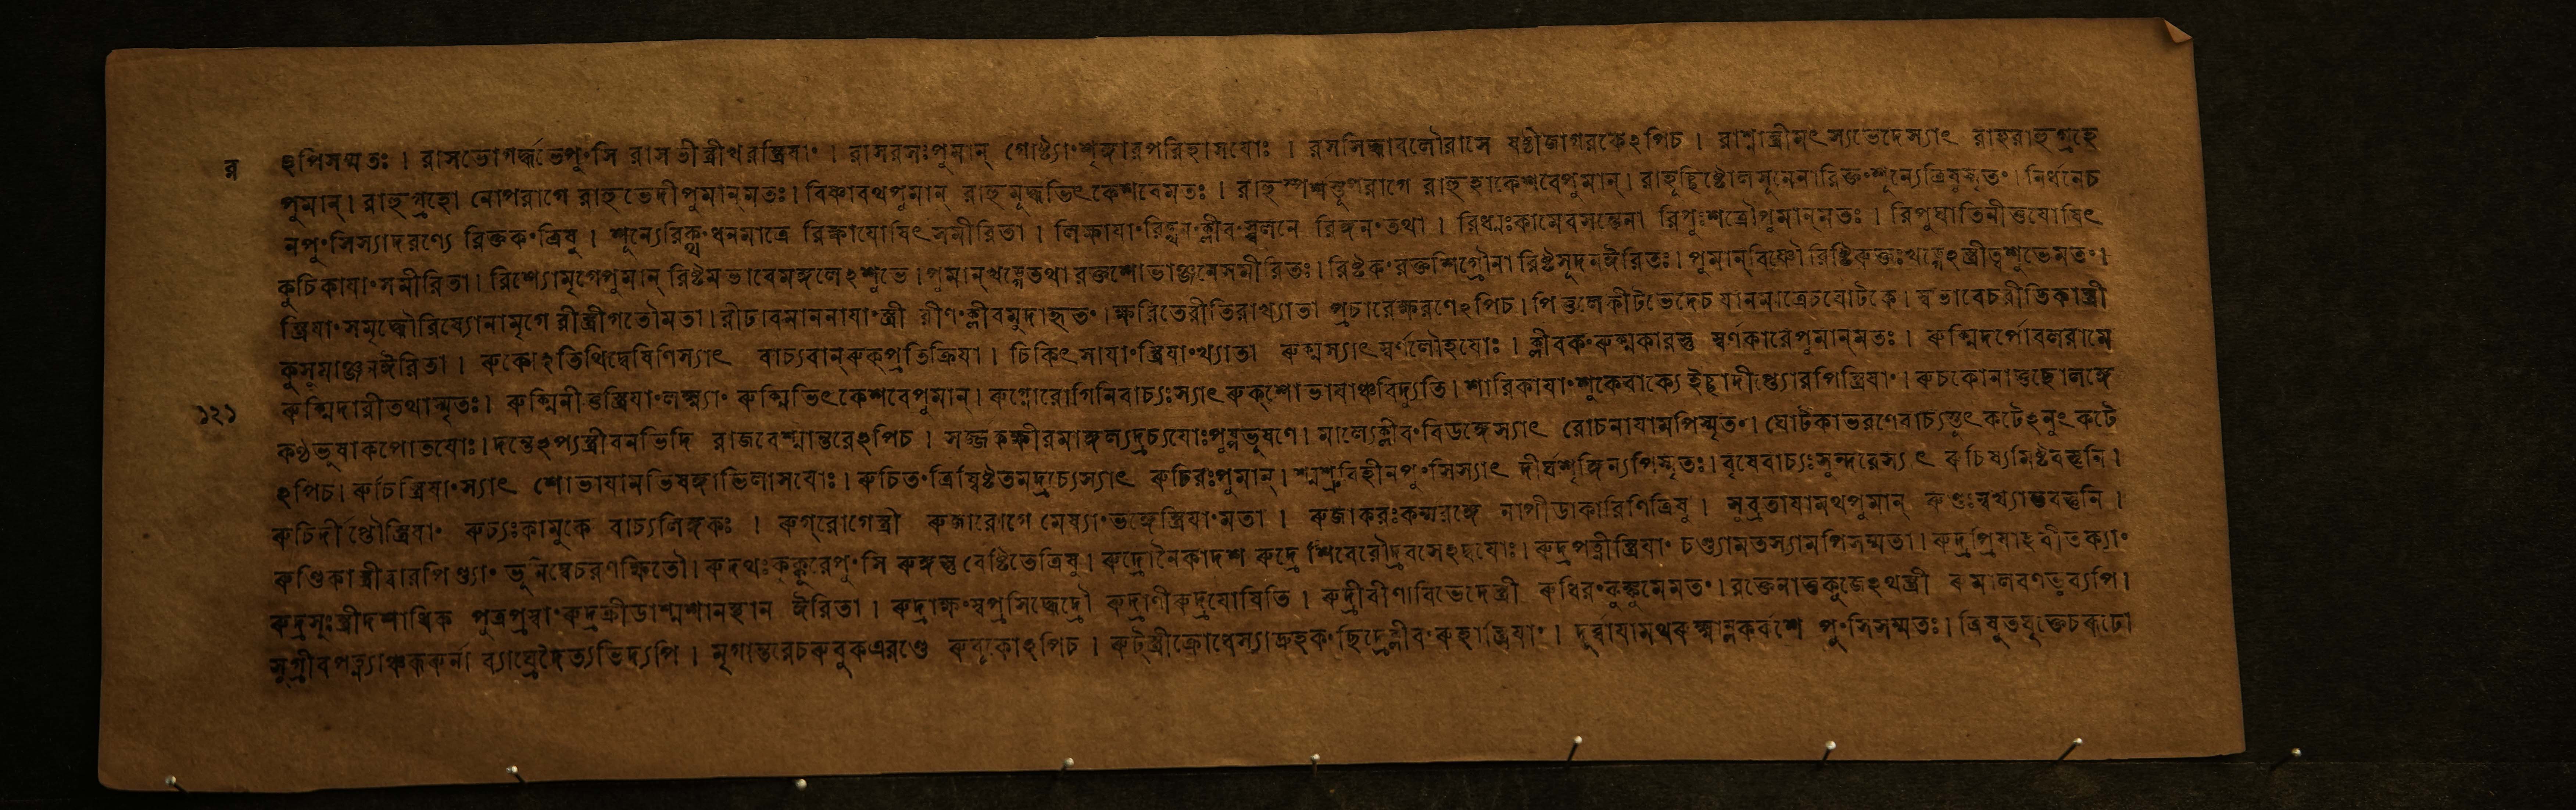 র ঽপিসম্মতঃ । রাসভোগর্দ্ধভেপুংসি রাসভীস্ত্রীখরস্ত্রিয়াং । রাসরসঃপুমান্ গোষ্ঠ্যাংশৃঙ্গারপরিহাসয়োঃ । রসসিদ্ধাবলৌরাসে ষষ্ঠীজাগরকেঽপিচ । রাস্নাস্ত্রীমৎস্যভেদেস্যাৎ রাহুরাহুগ্রহে
পুমান্। রাহুগ্রহো নোপরাগে রাহুভেদীপুমান্মতঃ। বিষ্ণাবথপুমান্ রাহুমূর্দ্ধভিৎকেশবেমতঃ । রাহুস্পর্শস্তূপরাগে রাহুহাকেশবেপুমান্। রাহূচ্ছিষ্টোলসূনেনা।রিক্তংশূন্যেত্রিষুস্মৃতং। নির্ধনেচ
নপুংসিস্যাদরণ্যে রিক্তকংত্রিষু । শূন্যেরিক্থংধনমাত্রে রিঙ্ক্ষায়োষিৎসমীরিতা । লিক্ষায়াংরিঙ্খনংক্লীবংস্খলনে রিঙ্গনংতথা । রিধ্মঃকামেবসন্তেনা রিপুঃশত্রৌপুমান্মতঃ । রিপুঘাতিনীতুয়োষিৎ
কুচিকায়াংসমীরিতা। রিশ্যোমৃগেপুমান্ রিষ্টমভাবেমঙ্গলেঽশুভে ।পুমান্খড়্গেতথা রক্তশোভাঞ্জনেসমীরিতঃ। রিষ্টকংরক্তশিগ্রৌনা রিষ্টসূদনঈরিতঃ। পুমান্বিষ্ণৌ রিষ্টিরুক্তঃখড়্গেঽস্ত্রীত্বশুভেমতং।
স্ত্রিয়াংসমৃদ্ধৌরিষ্যোনামৃগে রীস্ত্রীগতৌমতা। রীঢাবমাননায়াংস্ত্রী রীণংক্লীবমুদাহৃতং।ক্ষরিতেরীতিরাখ্যাতা প্রচারেক্ষরণেঽপিচ। পিত্তলেকীটভেদেচ যানমাত্রেচঘোটকে। স্বভাবেচরীতিকাস্ত্রী
কুসুমাঞ্জনঈরিতা । রুকোঽতিথিদ্বেষিণিস্যাৎ বাচ্যবান্রুক্প্রতিক্রিয়া। চিকিৎসায়াংস্ত্রিয়াংখ্যাতা রুক্মস্যাৎস্বর্ণলৌহয়োঃ । ক্লীবকংরুক্মকারস্তু স্বর্ণকারেপুমান্মতঃ । রুক্মিদর্পোবলরামে
১২১ রুক্মিদারীতথাস্মৃতঃ। রুক্মিনীতুস্ত্রিয়াংলক্ষ্ম্যাং রুক্মিভিৎকেশবেপুমান্। রুগ্নোরোগিনিবাচ্যঃস্যাৎরুক্শোভায়াঞ্চবিদ্যুতি। শারিকায়াংশুকেবাক্যে ইচ্ছাদীপ্ত্যোরপিস্ত্রিয়াং। রুচকোনাতুছোলঙ্গে
কণ্ঠভূষাকপোতয়োঃ।দন্তেঽপ্যস্ত্রীবনভিদি রাজবেশ্মান্তরেঽপিচ । সর্জ্জকক্ষীরমাঙ্গল্যদ্রচ্যয়োঃপুরভূষণে। মাল্যেক্লীবংবিডঙ্গেস্যাৎ রোচনায়ামপিস্মৃতং। ঘোটকাভরণেবাচ্যস্তূৎকটেঽনুৎকটে
ঽপিচ। রুচিস্ত্রিয়াংস্যাৎ শোভায়ামভিষঙ্গাভিলাসয়োঃ। রুচিতংত্রিষ্বিষ্টতমদ্রচ্যেস্যাৎ রুচিরঃপুমান্। শ্মশ্রুবিহীনপুংসিস্যাৎ দীর্ঘশৃঙ্গিন্যপিস্মৃতঃ। বৃষেবাচ্যঃসুন্দরেস্যাৎ রুচিষ্যমিষ্টবস্তুনি ।
রুচির্দীপ্তৌস্ত্রিয়াং রুচ্যঃকামুকে বাচ্যলিঙ্গকঃ । রুগ্‌রোগেস্ত্রী রুজারোগে মেষ্যাংভঙ্গেস্ত্রিয়াংমতা । রুজাকরঃকম্মরঙ্গে নাপীডাকারিণিত্রিষু । সুব্রতায়ামথপুমান্ রুণ্ডঃস্বখ্যাতবস্তুনি ।
রুণ্ডিকাস্ত্রীদ্বারপিণ্ড্যাং ভূমিষ্বেচরণক্ষিতৌ। রুদথঃকুক্কুরেপুংসি রুদ্ধস্তুবেষ্টিতেত্রিষু। রুদ্রোনৈকাদশ রুদ্রে শিবেরৌদ্রবসেঽহয়োঃ। রুদ্রপত্নীস্ত্রিয়াং চণ্ড্যামতস্যামপিসম্মতা। রুদ্রপ্রিয়াহরীতক্যাং
রুদ্রসূঃস্ত্রীদশাধিক পুত্রপ্রস্বাংরুদ্রক্রীডাশ্মশানস্থান ঈরিতা । রুদ্রাক্ষংস্বপ্রসিদ্ধেদ্রৌ রুদ্রাণীরুদ্রয়োষিতি । রুদ্রীবীণাবিভেদেস্ত্রী রুধিরংকুঙ্কুমেমতং। রক্তেনাতুকুজেঽথস্ত্রী রুমালবণভুব্যপি।
সুগ্রীবপত্ন্যাঞ্চরুরুর্না ব্যাঘ্রেদৈত্যভিদ্যপি । মৃগান্তরেচরুবুকএরণ্ডে রুবূকোঽপিচ । রুট্‌স্ত্রীক্রোধেস্যাদ্রুহকংছিদ্রেক্লীবংরুহাস্ত্রিয়াং । দুর্ব্বায়ামথরুক্ষোনকর্কশে পুংসিসম্মতঃ। ত্রিষুতযুক্তেচরূঢো